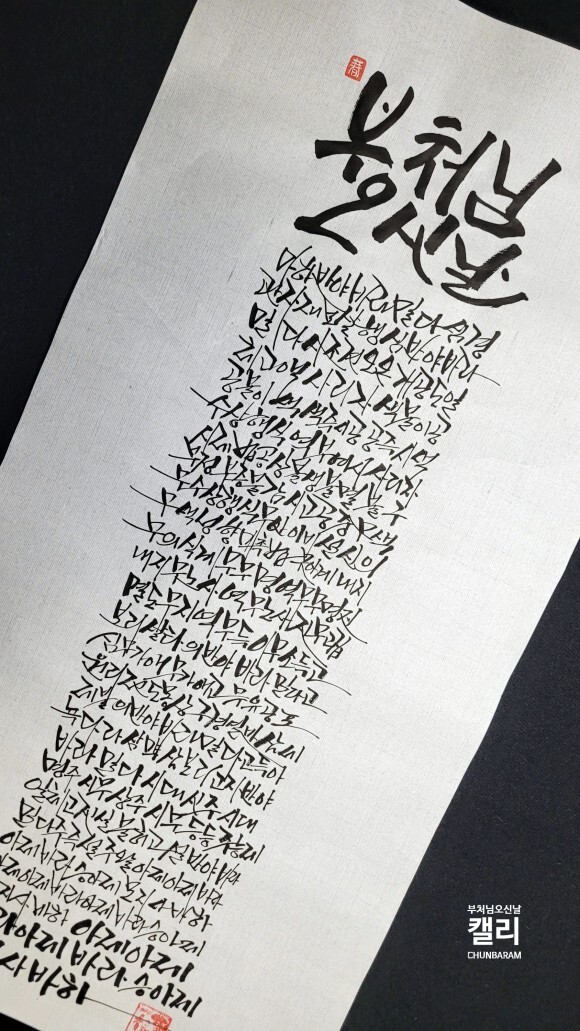 春
부처님
오신날
마하반야바라밀다심경
관자재보살 행심반야바라
밀다시 조견오온개공 도일
체고액 사리자 색불이공
공불이색 색즉시공 공즉시색
수상행식 역부여시 사리자
시제법공상 불생불멸 불구
부정 부증불감 시고 공중무색
무수상행식 무안이비설신의
무색성향미촉법 무안계 내지
무의식계 무무명 역무무명진
내지 무노사 역무노사진 무고집
멸도 무지역무득 이무소득고
보리살타 의반야바라밀다고
심무가애 무가애고 무유공포
원리전도몽상 구경열반 삼세
제불 의반야바라밀다고 득아
녹다라삼먁삼보리 고지반야
바라밀다 시대신주 시대
명주 시무상주 시무등등주 능제
일체고 진실불허 고설 반야바라
밀다주 즉설주왈 아제아제 바라
아제 바라승아제 모지 사바하
아제아제 바라아제 바라승아제
모지 사바하 아제아제
바라아제 바라승아제
모지 사바하
부처님오신날
캘리
CHUNBARAM